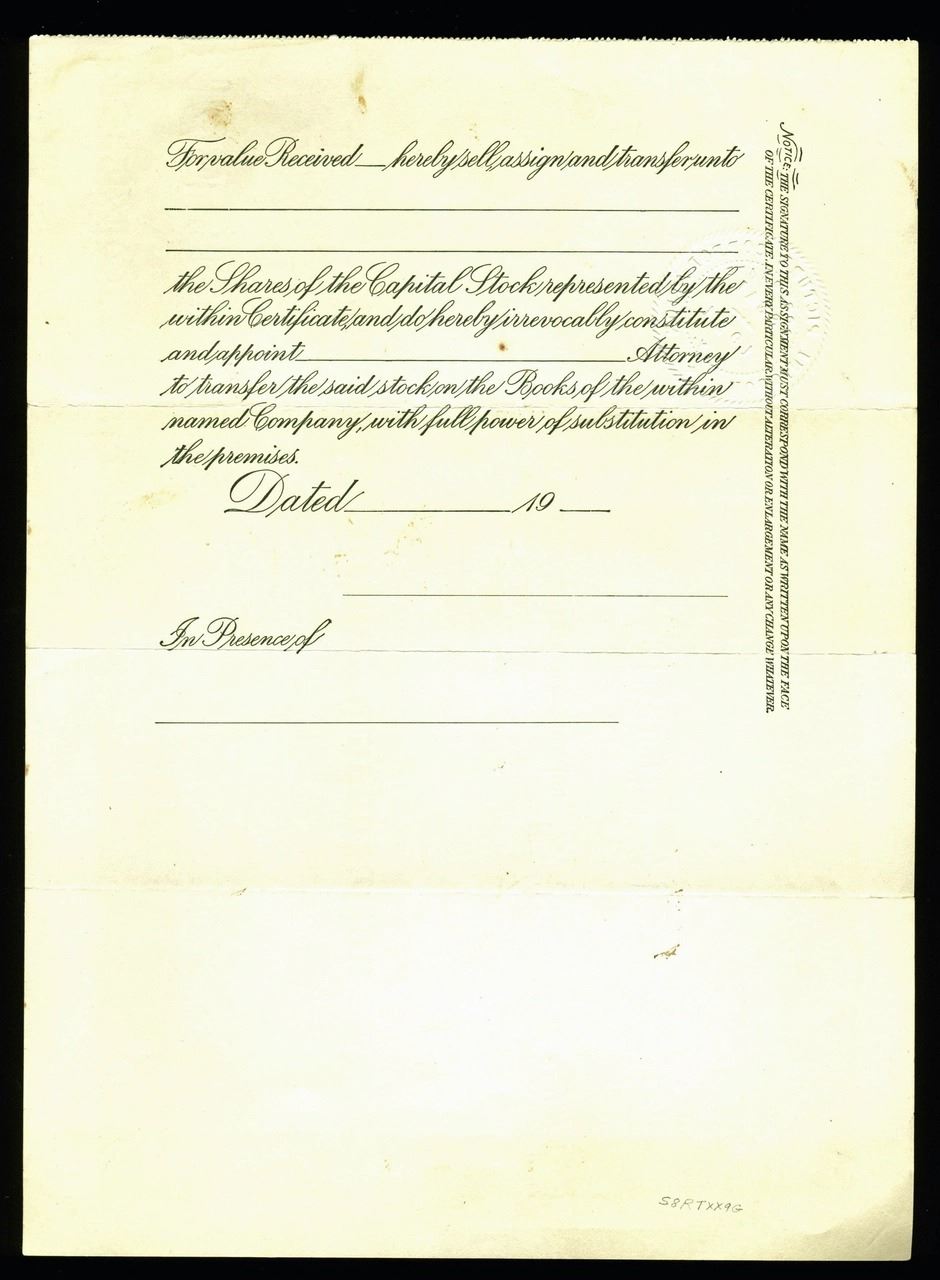 For value Received ___ hereby sell, assign and transfer unto
the Shares of the Capital Stock represented by the
within Certificate, and do hereby irrevocably constitute
and appoint ___ Attorney
to transfer the said stock on the Books of the within
named Company, with full power of substitution in
the premises.
Dated ___ 19 ___
In Presence of
NOTICE: THE SIGNATURE TO THIS ASSIGNMENT MUST CORRESPOND WITH THE NAME AS WRITTEN UPON THE FACE
OF THE CERTIFICATE, IN EVERY PARTICULAR, WITHOUT ALTERATION OR ENLARGEMENT OR ANY CHANGE WHATEVER.
S8RTXX9G